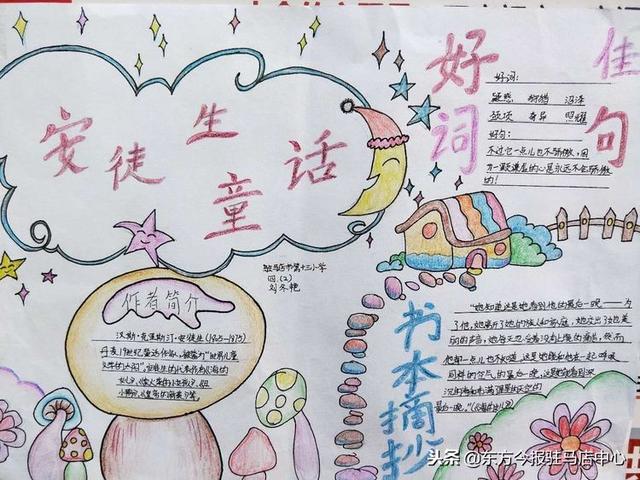 安徒生
童话
好词
佳句
好词:
疑惑 沼泽
颈项 耀
好句:
不过它一点儿也不骄傲,因
为一颗谦虚的心是永远不会骄傲
的!
驻马店市第十三小学
四.(2)
刘冬艳
作者简介
汉斯·克里斯汀·安徒生(1805-1875)
丹麦19世纪童话作家,被誉为"世界儿童
文学的太阳",
书本摘抄
"她知道这是她看到他的最后一晚——为
了他,她离开了她的族人和家庭,她交出了她美
丽的声音,她每天忍受着没有止境的痛苦,然而
他却一点儿也不知道.这是她能和他在一起呼吸
同样的空气的最后一晚,这是她能看到深
沉的海和布满了星星的天空的
最后一晚。"
头条@东方今报驻马店中心